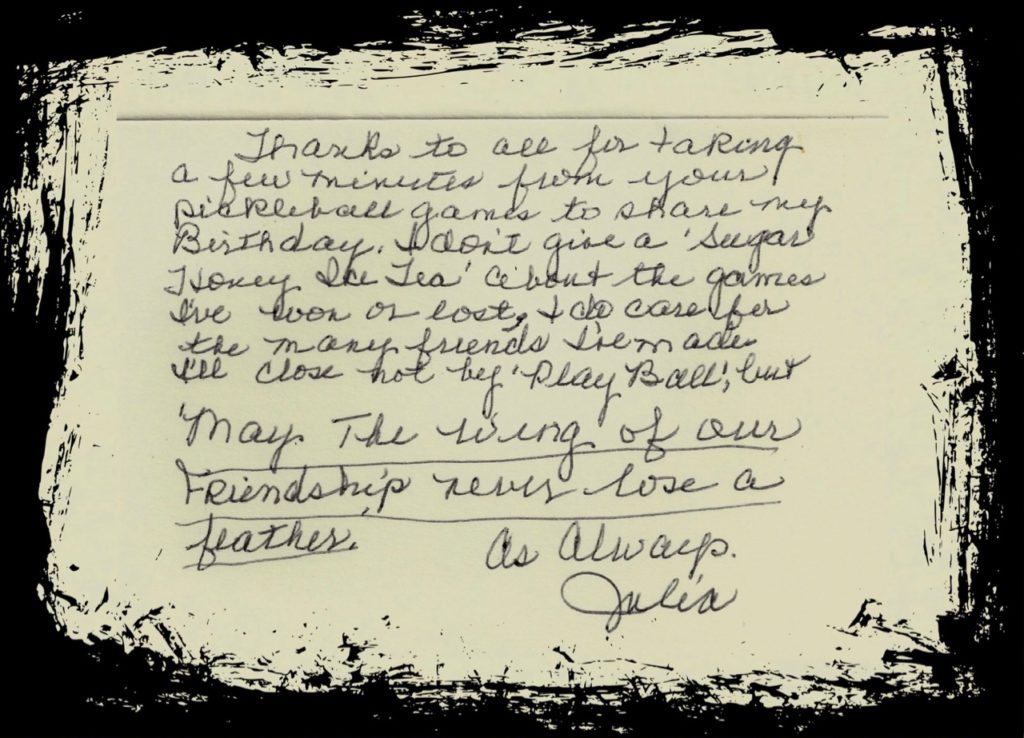 Thanks to all for taking
a few minutes from your
pickleball games to share my
Birthday. I don't give a 'Sugar
Honey Ice Tea' about the games
I've won or lost, I do care for
the many friends I've made
I'll close not by 'Play Ball', but
'May The wing of our
Friendship never lose a
feather.
As Always.
Julia